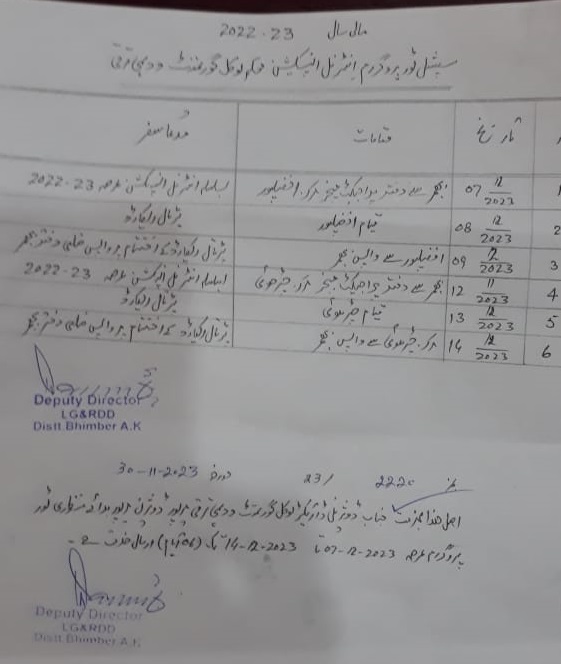 مالی سال 2022-23
سپیشل ٹور پروگرام انٹرنل انسپکشن محکمہ لوکل گورنمنٹ و دیہی ترقی
تاریخ مقامات مدعا سفر
1 07-12-2023 بھمبر سے دفتر پراجیکٹ منیجر مرکز افتخارپور بسلسلہ انٹرنل انسپکشن عرصہ 2022-23
2 08-12-2023 قیام پڑتال ریکارڈ
3 09-12-2023 سے واپس بھمبر پڑتال ریکارڈ کے اختتام پر واپس ضلعی دفتر بھمبر
4 12-11-2023 بھمبر سے دفتر پراجیکٹ منیجر مرکز چڑھوئی بسلسلہ انٹرنل انسپکشن عرصہ 2022-23
5 13-12-2023 قیام چڑھوئی پڑتال ریکارڈ
6 14-12-2023 مرکز چڑھوئی سے واپس بھمبر پڑتال ریکارڈ کے اختتام پر واپس ضلعی دفتر بھمبر
Deputy Director
LG&RDD
Distt.Bhimber A.K
نمبر 2220 /23 مورخہ 30-11-2023
اصل ہذا بخدمت جناب ڈویژنل ڈائریکٹر لوکل گورنمنٹ و دیہی ترقی میرپور ڈویژن میرپور برائے منظوری ٹور
پروگرام عرصہ 07-12-2023 تا 14-12-2023 تک (06 ایام) ارسال خدمت ہے۔
Deputy Director
LG&RDD
Distt.Bhimber A.K